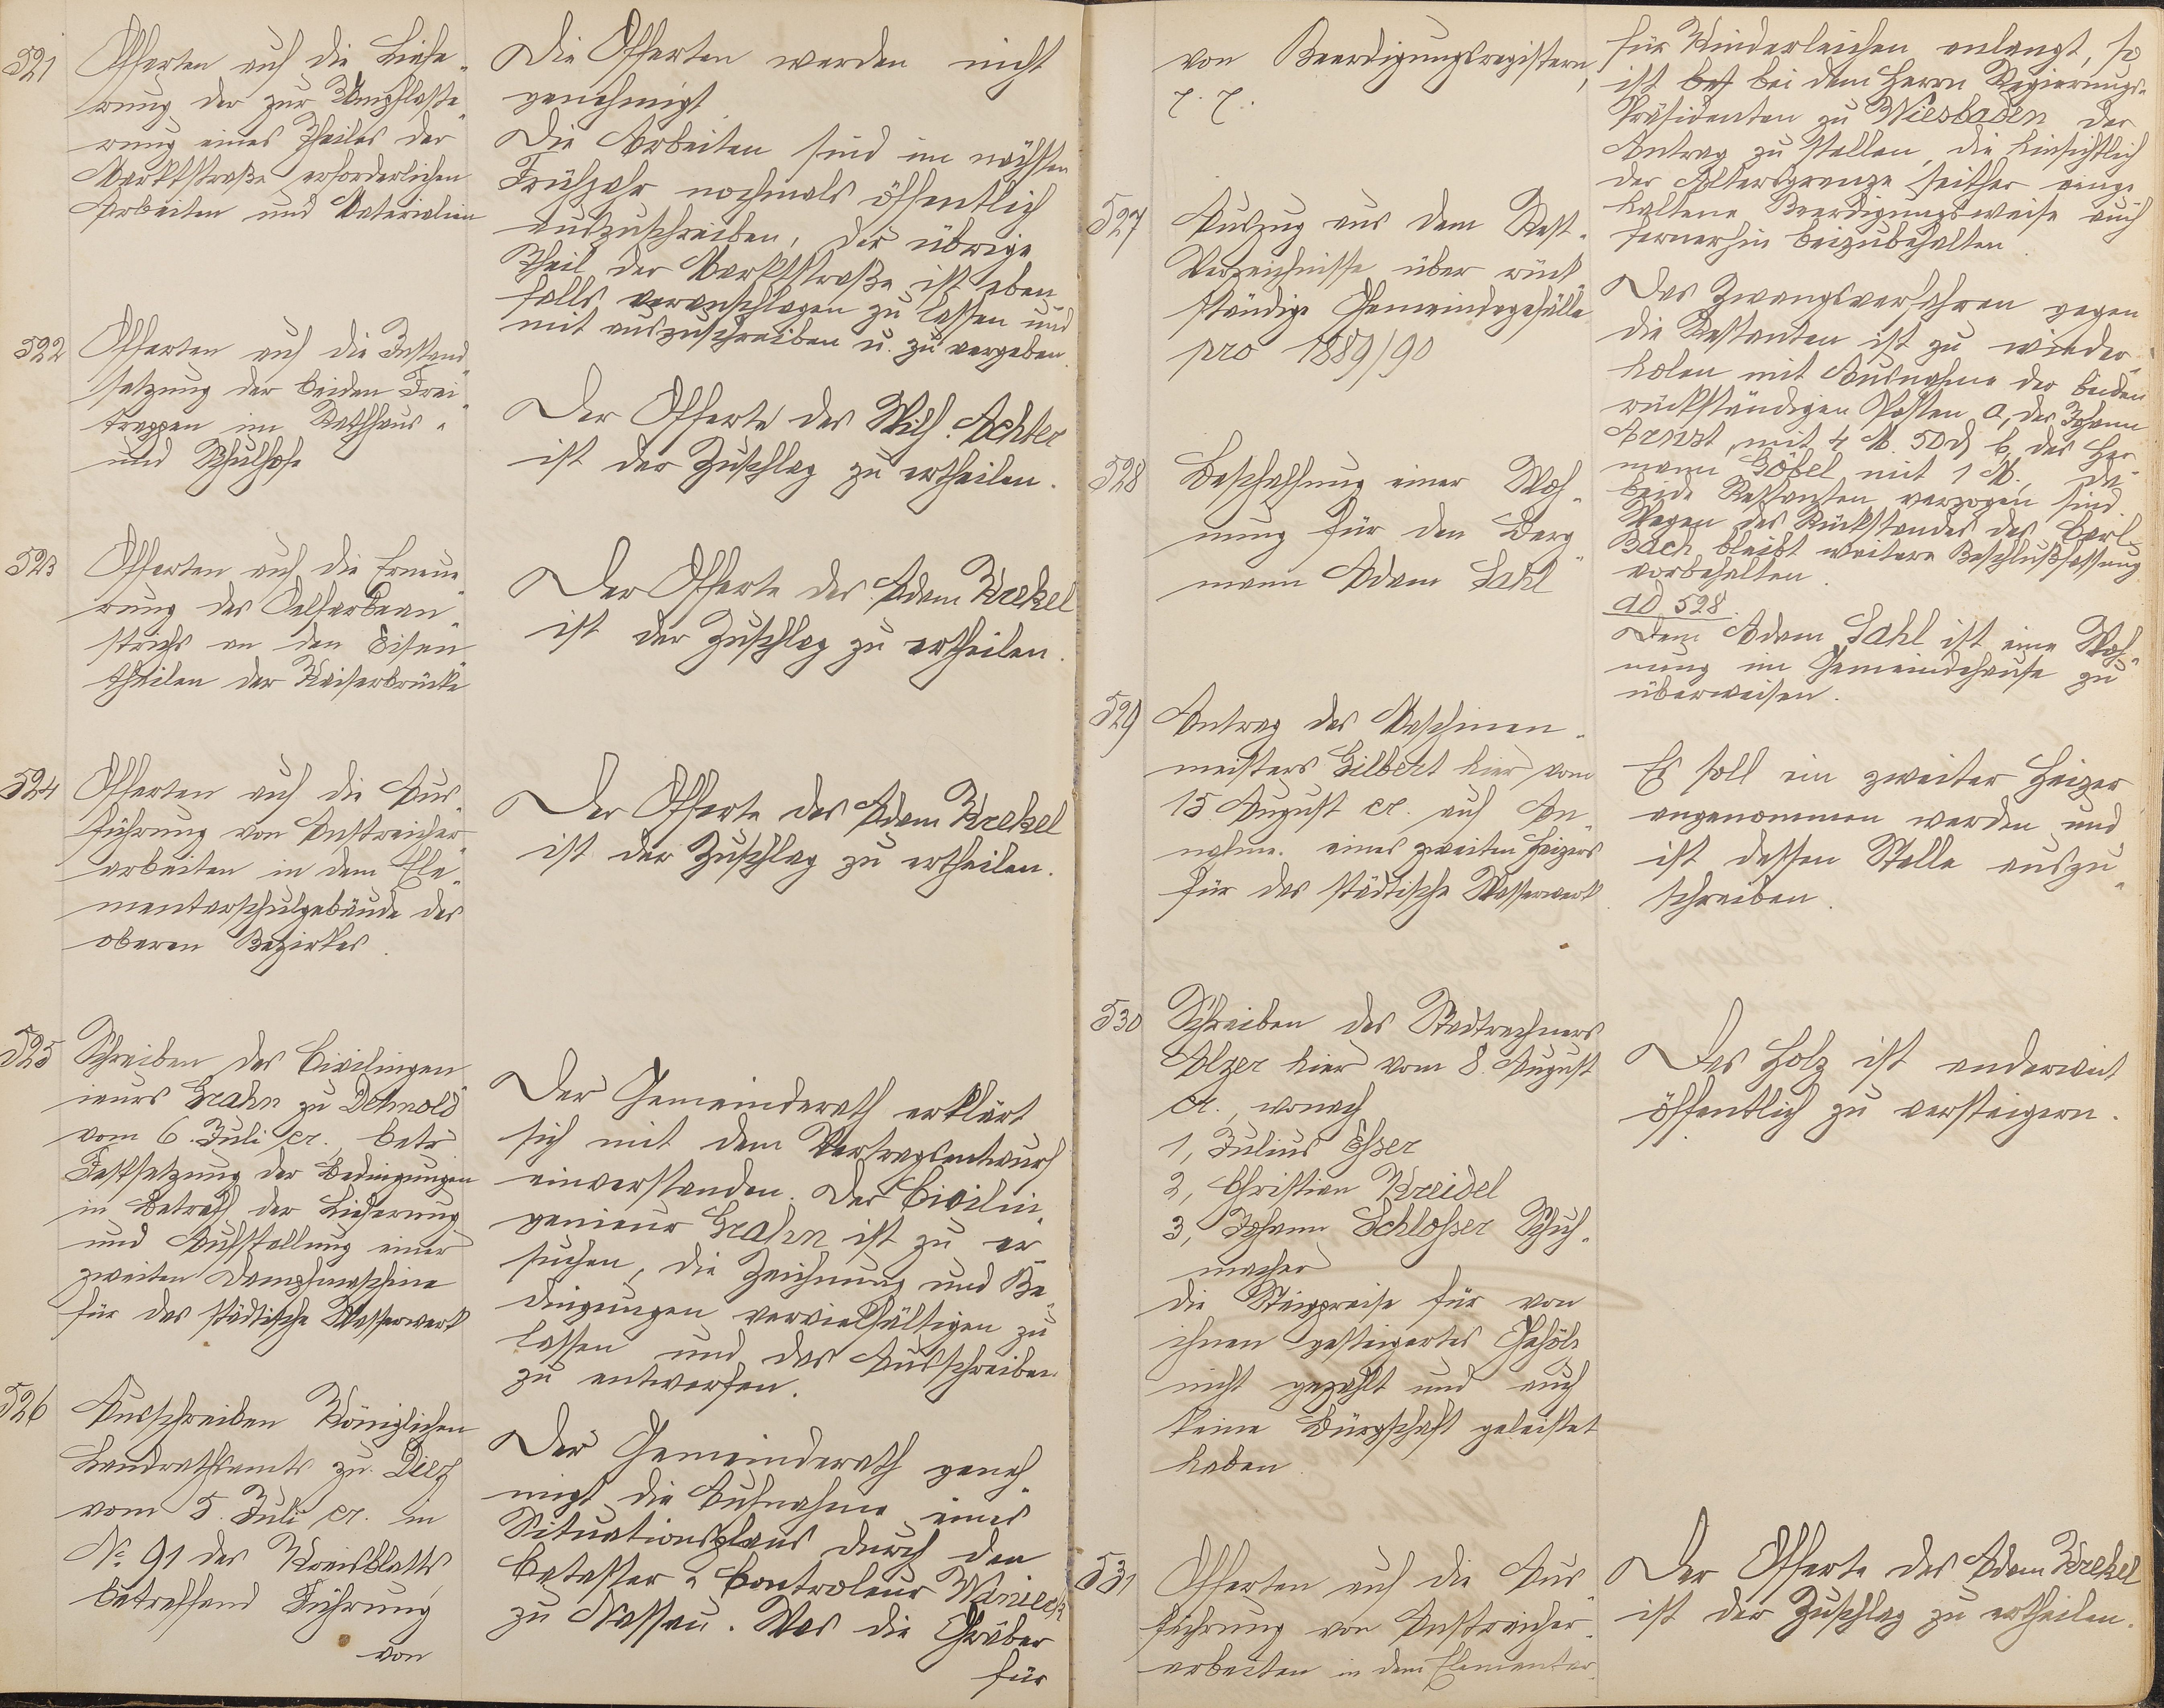 521
Offerten auf die Liefe-
rung der zur Umpflaste-
rung eines Theiles der
Marktstraße erforderlichen
Arbeiten und Materialien
Die Offerten werden nicht
genehmigt
Die Arbeiten sind im nächsten
Frühjahr nochmals öffentlich
auszuschreiben, der übrige
Theil der Marktstraße ist eben-
falls veranschlagen zu lassen und
mit auszuschreiben u. zu vergeben.
522
Offerten auf die Instand-
setzung der beiden Frei-
treppen im Rathhaus-
und Schulhofe
Der Offerte des Wilh. Achter
ist der Zuschlag zu ertheilen.
523
Offerten auf die Erneue-
rung des Oelfarbean-
strichs an den Eisen-
theilen der Kaiserbrücke
Der Offerte des Adam Krekel
ist der Zuschlag zu ertheilen.
524
Offerten auf die Aus-
führung von Anstreicher-
arbeiten in dem Ele-
mentarschulgebäude des
oberen Bezirkes.
Der Offerte des Adam Krekel
ist der Zuschlag zu ertheilen.
525
Schreiben des Civilingen-
ieurs Grahn zu Detmold
vom 6. Juli cr. betr
Festsetzung der Bedingungen
in Betreff der Lieferung
und Aufstellung einer
zweiten Dampfmaschine
für das städtische Wasserwerk
Der Gemeinderath erklärt
sich mit dem Vertragsentwurf
einverstanden. Der Civilin-
genieur Grahn ist zu er-
suchen, die Zeichnung und Be-
dingungen vervielfältigen zu
lassen und das Ausschreiben
zu entwerfen.
526
Ausschreiben Königlichen
Landrathsamts zu Diez
vom 5. Juli cr. in
No 91 des Kreisblatts
betreffend Führung
von
Der Gemeinderath geneh-
migt die Aufnahme eines
Situationsplans durch den
Cataster-Controleur Wanieck
zu Nassau. Was die Gräber
für
von Beerdigungsregistern,
p. p.
für Kinderleichen anlangt, so
ist bei dem Herrn Regierungs-
Präsidenten zu Wiesbaden der
Antrag zu stellen, die hinsichtlich
der Altersgrenze seither einge-
haltene Beerdigungsweise auch
fernerhin beizubehalten
527
Auszug aus dem Rest-
Verzeichnisse über rück-
ständige Gemeindegefälle
pro 1889/90
Das Zwangsverfahren gegen
die Restanten ist zu wieder-
holen mit Ausnahme der beiden
rückständigen Posten a, des Johann
Arnst mit 4 M. 50 d b, des Her-
mann Göbel mit 1 M., da
beide Restanten verzogen sind.
Wegen des Rückstandes des Carl
Bach bleibt weitere Beschlußfassung
vorbehalten.
528
Beschaffung einer Woh-
nung für den Berg-
mann Adam Sahl
ad 528.
Dem Adam Sahl ist eine Woh-
nung im Gemeindehause zu
überweisen.
529
Antrag des Maschinen-
meisters Gilbert hier vom
15. August cr. auf An-
nahme eines zweiten Heizers
für das städtische Wasserwerk.
Es soll ein zweiter Heizer
angenommen werden und
ist dessen Stelle auszu-
schreiben.
530
Schreiben des Stadtrechners
Alzer hier vom 8. August
cr., wonach
1, Julius Esser
2, Christian Kreidel
3, Johann Schlosser Schuh-
macher
die Steigpreise für von
ihnen gesteigertes Gehölz
nicht gezahlt und auch
keine Bürgschaft geleistet
haben.
Das Holz ist anderweit
öffentlich zu versteigern.
531
Offerten auf die Aus-
führung von Anstreicher-
arbeiten in dem Elementar-
Der Offerte des Adam Krekel
ist der Zuschlag zu ertheilen.